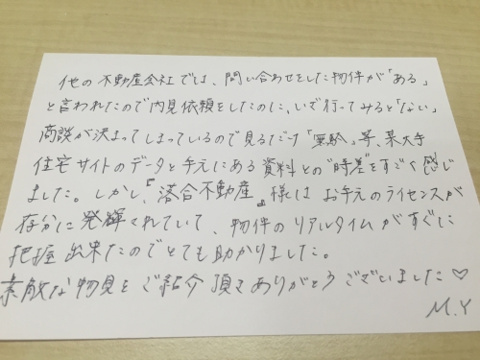 他の不動産会社では、問い合わせをした物件が「ある」
と言われたので内見依頼をしたのに、いざ行ってみると「ない」
商談が決まってしまっているので見るだけ「無駄」等、某大手
住宅サイトのデータと手元にある資料との"時差"をすごく感じ
ました。しかし、『落合不動産』様はお手元のライセンスが
存分に発揮されていて、物件のリアルタイムがすぐに
把握出来たのでとても助かりました。
素敵な物見をご紹介頂きありがとうございました♡
M.Y